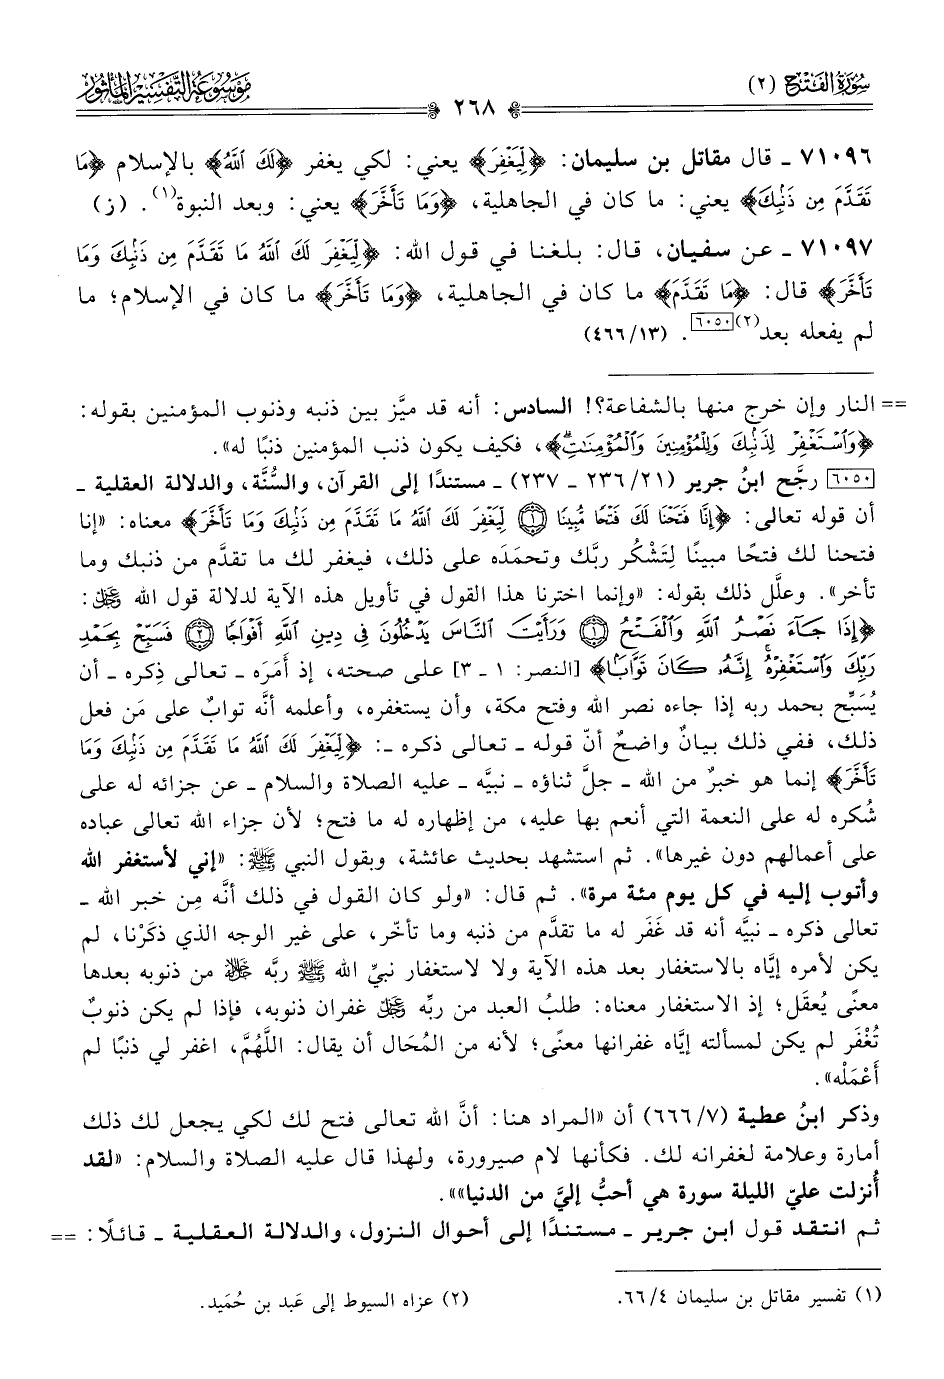 سُورَةُ الفَتْحِ (٢)
٢٦٨
مَوْسُوعَة التَّفْسِيرِ المَأْثُور
٧١٠٩٦ ـ قال مقاتل بن سليمان: ﴿لِيَغْفِرَ﴾ يعني: لكي يغفر ﴿لَكَ اللَّهُ﴾ بالإسلام ﴿مَا
تَقَدَّمَ مِن ذَنْبِكَ﴾ يعني: ما كان في الجاهلية، ﴿وَمَا تَأَخَّرَ﴾ يعني: وبعد النبوة(١). (ز)
٧١٠٩٧ ـ عن سفيان، قال: بلغنا في قول الله: ﴿لِيَغْفِرَ لَكَ اللَّهُ مَا تَقَدَّمَ مِن ذَنْبِكَ وَمَا
تَأَخَّرَ﴾ قال: ﴿مَا تَقَدَّمَ﴾ ما كان في الجاهلية، ﴿وَمَا تَأَخَّرَ﴾ ما كان في الإسلام؛ ما
لم يفعله بعد(٢)[٦٠٥٠]. (٤٦٦/١٣)
== النار وإن خرج منها بالشفاعة؟! السادس: أنه قد ميَّز بين ذنبه وذنوب المؤمنين بقوله:
﴿وَاسْتَغْفِرْ لِذَنْبِكَ وَلِلْمُؤْمِنِينَ وَالْمُؤْمِنَاتِۗ﴾، فكيف يكون ذنب المؤمنين ذنبًا له».
[٦٠٥٠] رجَّح ابنُ جرير (٢٣٦/٢١ ـ ٢٣٧) ـ مستندًا إلى القرآن، والسُّنَّة، والدلالة العقلية ـ
أن قوله تعالى: ﴿إِنَّا فَتَحْنَا لَكَ فَتْحًا مُّبِينًا ۝١ لِيَغْفِرَ لَكَ اللَّهُ مَا تَقَدَّمَ مِن ذَنْبِكَ وَمَا تَأَخَّرَ﴾ معناه: «إنا
فتحنا لك فتحًا مبينًا لِتَشْكُر ربَّك وتحمَدَه على ذلك، فيغفر لك ما تقدَّم من ذنبك وما
تأخر». وعلَّل ذلك بقوله: «وإنما اخترنا هذا القول في تأويل هذه الآية لدلالة قول الله عز وجل:
﴿إِذَا جَاءَ نَصْرُ اللَّهِ وَالْفَتْحُ ۝١ وَرَأَيْتَ النَّاسَ يَدْخُلُونَ فِي دِينِ اللَّهِ أَفْوَاجًا ۝٢ فَسَبِّحْ بِحَمْدِ
رَبِّكَ وَاسْتَغْفِرْهُۚ إِنَّهُۥ كَانَ تَوَّابًا﴾ [النصر: ١ ـ ٣] على صحته، إذ أَمَرَه ـ تعالى ذِكره ـ أن
يُسَبِّح بحمد ربه إذا جاءه نصر الله وفتح مكة، وأن يستغفره، وأعلمه أنَّه توابٌ على مَن فعل
ذلك، ففي ذلك بيانٌ واضحٌ أنّ قوله ـ تعالى ذكره ـ: ﴿لِيَغْفِرَ لَكَ اللَّهُ مَا تَقَدَّمَ مِن ذَنْبِكَ وَمَا
تَأَخَّرَ﴾ إنما هو خبرٌ من الله ـ جلَّ ثناؤه ـ نبيَّه ـ عليه الصلاة والسلام ـ عن جزائه له على
شُكره له على النعمة التي أنعم بها عليه، من إظهاره له ما فتح؛ لأن جزاء الله تعالى عباده
على أعمالهم دون غيرها». ثم استشهد بحديث عائشة، وبقول النبي ﷺ: «إني لأستغفر الله
وأتوب إليه في كل يوم مئة مرة». ثم قال: «ولو كان القول في ذلك أنَّه مِن خبر الله ـ
تعالى ذكره ـ نبيَّه أنه قد غَفَر له ما تقدَّم من ذنبه وما تأخّر، على غير الوجه الذي ذكَرْنا، لم
يكن لأمره إيَّاه بالاستغفار بعد هذه الآية ولا لاستغفار نبيِّ الله ﷺ ربَّه جل جلاله من ذنوبه بعدها
معنًى يُعقَل؛ إذ الاستغفار معناه: طلبُ العبد من ربِّه عز وجل غفران ذنوبه، فإذا لم يكن ذنوبٌ
تُغْفَر لم يكن لمسألته إيَّاه غفرانها معنًى؛ لأنه من المُحَال أن يقال: اللَّهُمَّ، اغفر لي ذنبًا لم
أَعْمَلْه».
وذكر ابنُ عطية (٦٦٦/٧) أن «المراد هنا: أنَّ الله تعالى فتح لك لكي يجعل لك ذلك
أمارة وعلامة لغفرانه لك. فكأنها لام صيرورة، ولهذا قال عليه الصلاة والسلام: «لقد
أُنزلت عليّ الليلة سورة هي أحبُّ إليَّ من الدنيا»».
ثم انتقد قول ابن جرير ـ مستندًا إلى أحوال النزول، والدلالة العقلية ـ قائلًا: ==
(١) تفسير مقاتل بن سليمان ٦٦/٤.
(٢) عزاه السيوط إلى عَبد بن حُمَيد.